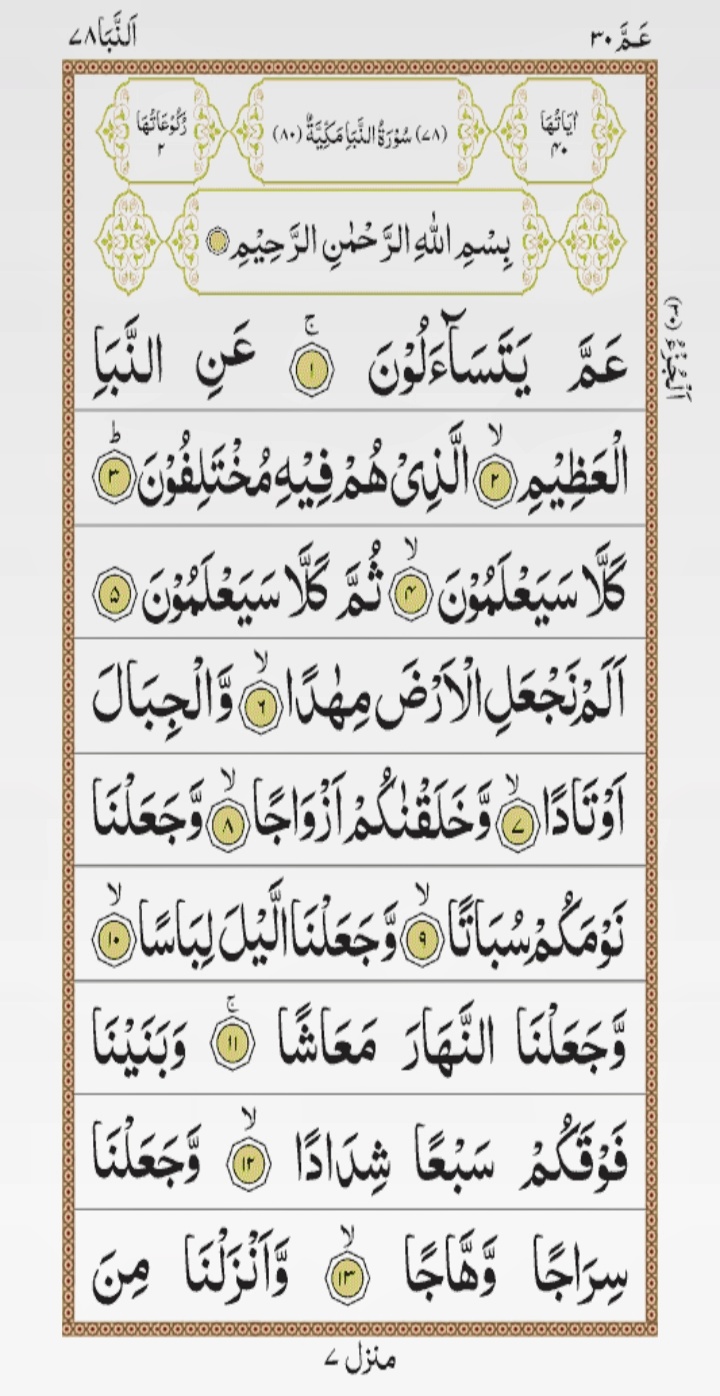 عَمَّ ٣٠
اَلنَّبَا ٧٨
اٰيَاتُهَا ٤٠
(٧٨) سُوْرَةُ النَّبَاِ مَكِّيَّةٌ (٨٠)
رُكُوْعَاتُهَا ٢
بِسْمِ اللّٰهِ الرَّحْمٰنِ الرَّحِيْمِ
اَلْجُزْءُ (٣٠)
عَمَّ يَتَسَآءَلُوْنَ ۚ ﴿١﴾ عَنِ النَّبَاِ
الْعَظِيْمِ ۙ ﴿٢﴾ الَّذِىْ هُمْ فِيْهِ مُخْتَلِفُوْنَ ؕ ﴿٣﴾
كَلَّا سَيَعْلَمُوْنَ ۙ ﴿٤﴾ ثُمَّ كَلَّا سَيَعْلَمُوْنَ ﴿٥﴾
اَلَمْ نَجْعَلِ الْاَرْضَ مِهٰدًا ۙ ﴿٦﴾ وَّالْجِبَالَ
اَوْتَادًا ۙ ﴿٧﴾ وَّخَلَقْنٰكُمْ اَزْوَاجًا ۙ ﴿٨﴾ وَّجَعَلْنَا
نَوْمَكُمْ سُبَاتًا ۙ ﴿٩﴾ وَّجَعَلْنَا الَّيْلَ لِبَاسًا ۙ ﴿١٠﴾
وَّجَعَلْنَا النَّهَارَ مَعَاشًا ۚ ﴿١١﴾ وَبَنَيْنَا
فَوْقَكُمْ سَبْعًا شِدَادًا ۙ ﴿١٢﴾ وَّجَعَلْنَا
سِرَاجًا وَّهَّاجًا ۙ ﴿١٣﴾ وَّاَنْزَلْنَا مِنَ
منزل ٧